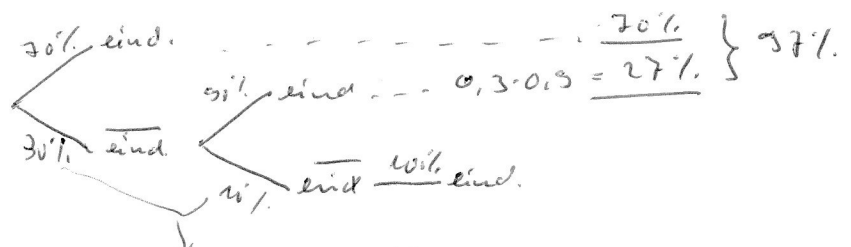 70% eind. - - - - - - - - 70% } 97%
90% eind. - - - 0,3·0,9 = 27%
30% eind.
10% eind 10% eind.